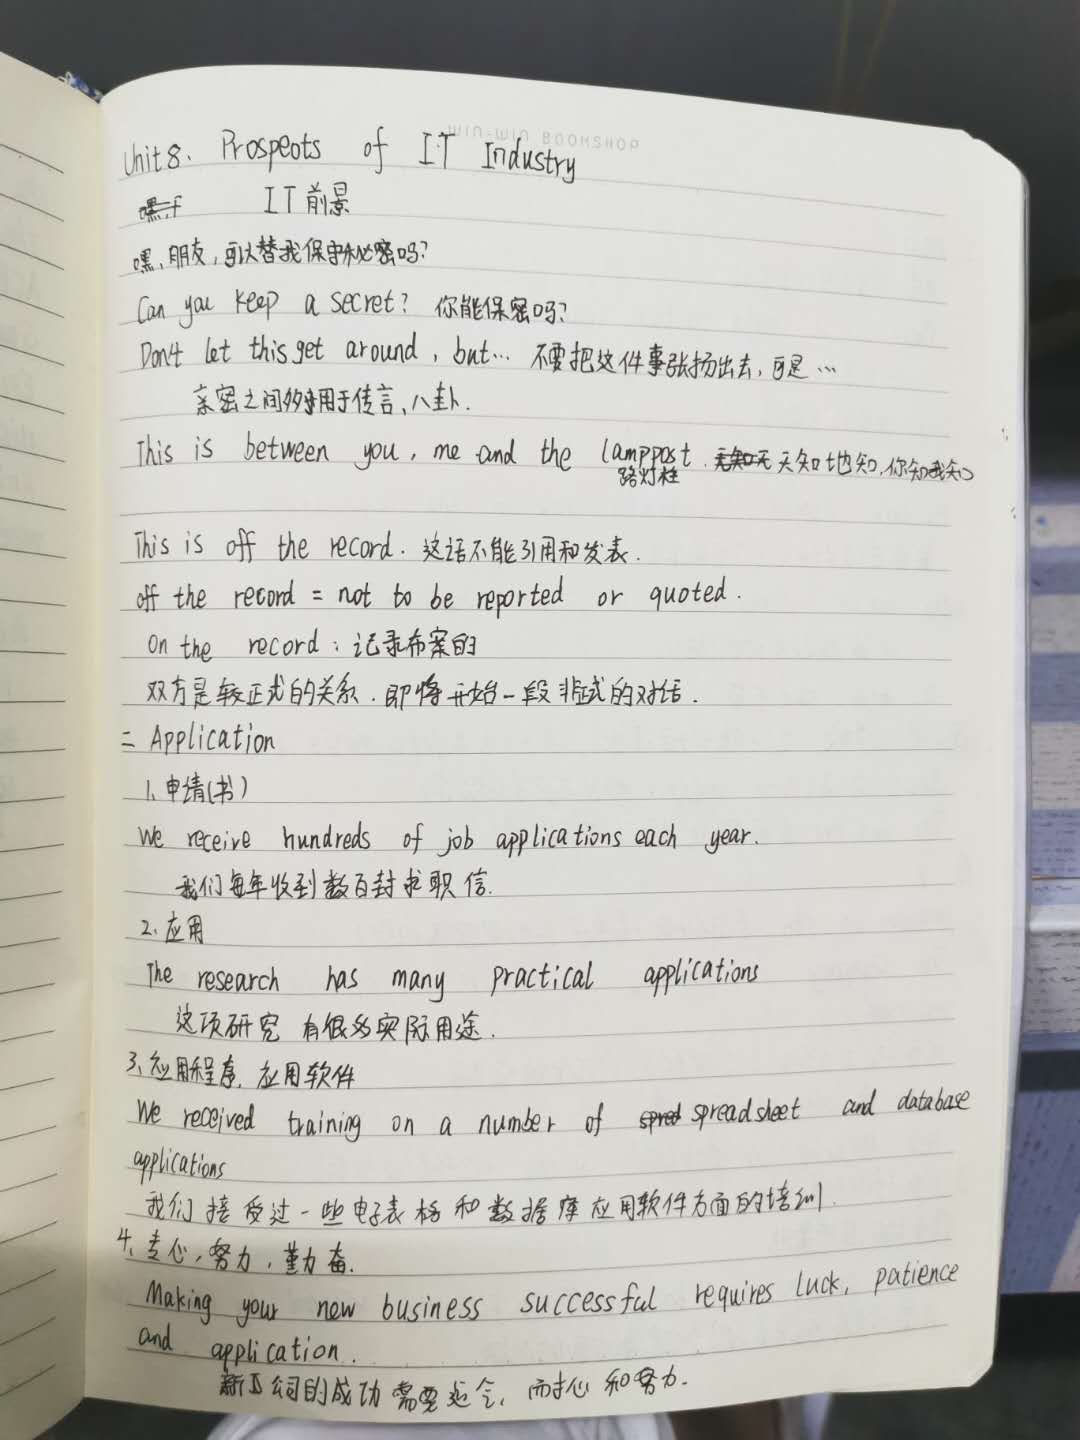 WIN-WIN BOOKSHOP
Unit 8. Prospects of IT Industry
IT 前景
嘿,朋友,可以替我保守秘密吗?
Can you keep a secret? 你能保密吗?
Don't let this get around, but... 不要把这件事张扬出去,可是...
亲密之间多用于传言、八卦.
This is between you, me and the lamppost. 天知地知,你知我知
路灯柱
This is off the record. 这话不能引用和发表.
off the record = not to be reported or quoted.
on the record: 记录布案的
双方是较正式的关系.即将开始一段非正式的对话.
二 Application
1、申请(书)
We receive hundreds of job applications each year.
我们每年收到数百封求职信.
2、应用
The research has many practical applications
这项研究有很多实际用途.
3、应用程序,应用软件
We received training on a number of spreadsheet and database
applications
我们接受过一些电子表格和数据库应用软件方面的培训.
4、专心,努力,勤奋.
Making your new business successful requires luck, patience
and application.
新公司的成功需要运气,耐心和努力.